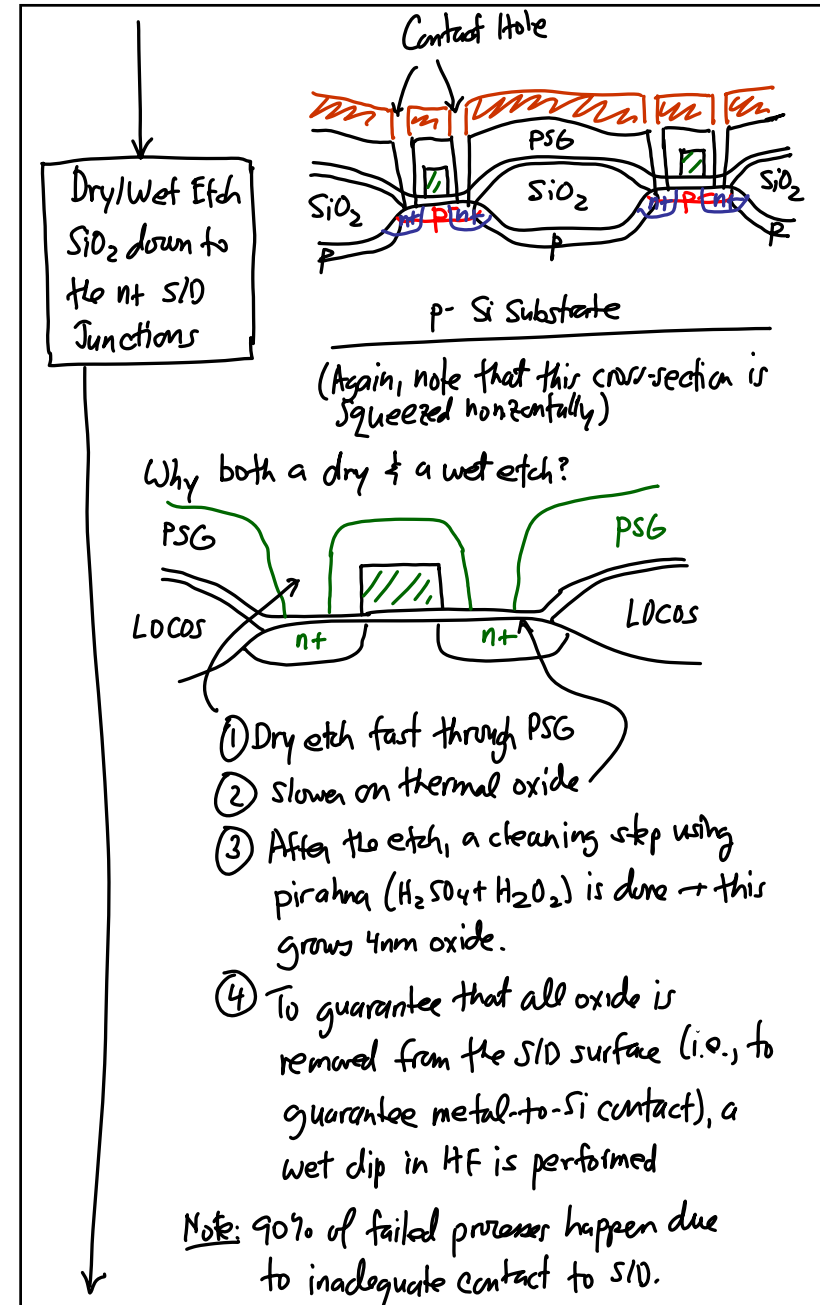 Contact Hole
PSG
SiO2
SiO2
SiO2
n+ p n+
n+ p n+
p
p
p
p- Si Substrate
Dry/Wet Etch
SiO2 down to
the n+ S/D
Junctions
(Again, note that this cross-section is
squeezed horizontally)
Why both a dry & a wet etch?
PSG
PSG
LOCOS
LOCOS
n+
n+
① Dry etch fast through PSG
② Slower on thermal oxide
③ After the etch, a cleaning step using
pirahna (H2SO4 + H2O2) is done → this
grows 4nm oxide.
④ To guarantee that all oxide is
removed from the S/D surface (i.e., to
guarantee metal-to-Si contact), a
wet dip in HF is performed
Note: 90% of failed processes happen due
to inadequate contact to S/D.